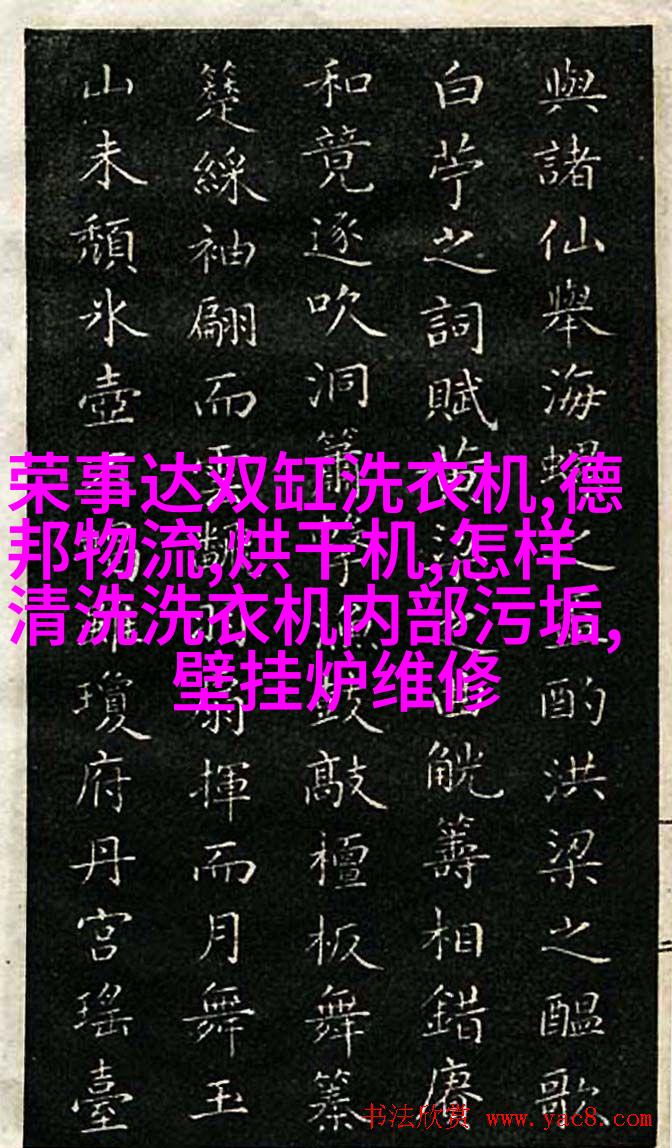 與諸仙舉海螺之玉酌洪梁之醞歌
白苧之詞賦黃之曲觥籌相錯賡
和竟逐吹洞簫鼓敲檀板舞
綵袖翩而雲翻羽扇揮而月舞玉
山未頹氷壺瓊府丹宮瑤臺
荣事达双缸洗衣机,德
邦物流,烘干机,怎样
清洗洗衣机内部污垢,
壁挂炉维修
书法欣赏 www.yac8.com